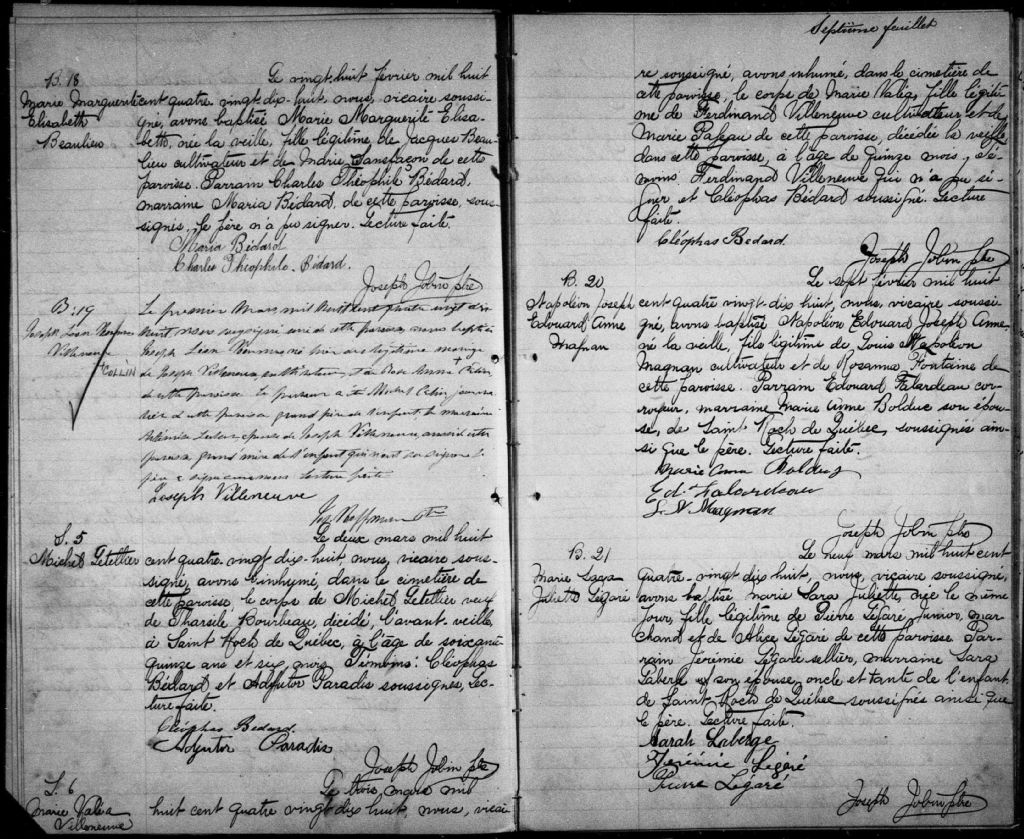 B. 18
Marie Marguerite
Elisabeth
Beaulieu
Le vingt-huit février mil huit
cent quatre-vingt-dix-huit, nous, vicaire soussi-
gné, avons baptisé Marie Marguerite Elisa-
beth, née la veille, fille légitime de Jacques Beau-
lieu cultivateur et de Marie Sansfaçon de cette
paroisse. Parrain Charles Théophile Bédard,
marraine Maria Bédard, de cette paroisse, sous-
signés, le père n'a pu signer. Lecture faite.
Maria Bédard
Charles Théophile Bédard.
Joseph Jobin Ptre
B. 19
Joseph Léon
Villeneuve
COLLIN
Le premier Mars mil huit cent quatre vingt dix
huit nous soussigné curé de cette paroisse avons baptisé
Joseph Léon né hier du légitime mariage
de Joseph Villeneuve et de Rose Anna
de cette paroisse Le parrain a été Michel
de cette paroisse grand père de l'enfant la marraine
épouse de Joseph Villeneuve aussi de cette
paroisse grand mère de l'enfant qui n'ont su signer le
père a signé avec nous lecture faite
Joseph Villeneuve
Ptre
S. 5
Michel Letellier
Le deux mars mil huit
cent quatre-vingt-dix-huit, nous, vicaire sous-
signé, avons inhumé, dans le cimetière de
cette paroisse, le corps de Michel Letellier veuf
de Tharsile Bourbeau, décédé, l'avant-veille,
à Saint Roch de Québec, à l'âge de soixante
quinze ans et six mois, Témoins: Cléophas
Bédard et Adjutor Paradis soussignés, Lec-
ture faite.
Cléophas Bedard.
Adjutor Paradis
Joseph Jobin Ptre
S. 6
Marie Valéa
Villeneuve
Le trois mars mil
huit cent quatre vingt dix huit, nous, vicai
Septième feuillet
re soussigné, avons inhumé, dans le cimetière de
cette paroisse, le corps de Marie Valéa, fille légiti-
me de Ferdinand Villeneuve cultivateur et de
Marie Pageau de cette paroisse, décédée la veille
dans cette paroisse, à l'âge de quinze mois, té-
moins Ferdinand Villeneuve qui n'a pu si-
gner et Cléophas Bédard soussigné. Lecture
faite.
Cléophas Bedard.
Joseph Jobin Ptre
B. 20
Napoléon Joseph
Edouard Anne
Magnan
Le sept février mil huit
cent quatre vingt-dix huit, nous, vicaire soussi
gné, avons baptisé Napoléon Edouard Joseph Anne,
né la veille, fils légitime de Louis Napoléon
Magnan cultivateur et de Rosanna Fontaine de
cette paroisse. Parrain Edouard Falardeau cor-
royeur, marraine Marie Anne Bolduc son épou-
se, de Saint Roch de Québec, soussignés ain-
si que le père. Lecture faite.
Marie Anna Bolduc
Ed. Falardeau
L. N. Magnan
Joseph Jobin Ptre
B. 21
Marie Sara
Juliette Légaré
Le neuf mars mil huit cent
quatre-vingt dix huit, nous, vicaire soussigné,
avons baptisé Marie Sara Juliette, née le même
jour, fille légitime de Pierre Légaré Junior, mar-
chand et de Alice Légaré de cette paroisse. Par-
rain Jérémie Légaré sellier, marraine Sara
Laberge son épouse, oncle et tante de l'enfant
de Saint-Roch de Québec soussignés ainsi que
le père. Lecture faite.
Sarah Laberge
Jérémie Légaré
Pierre Légaré
Joseph Jobin Ptre